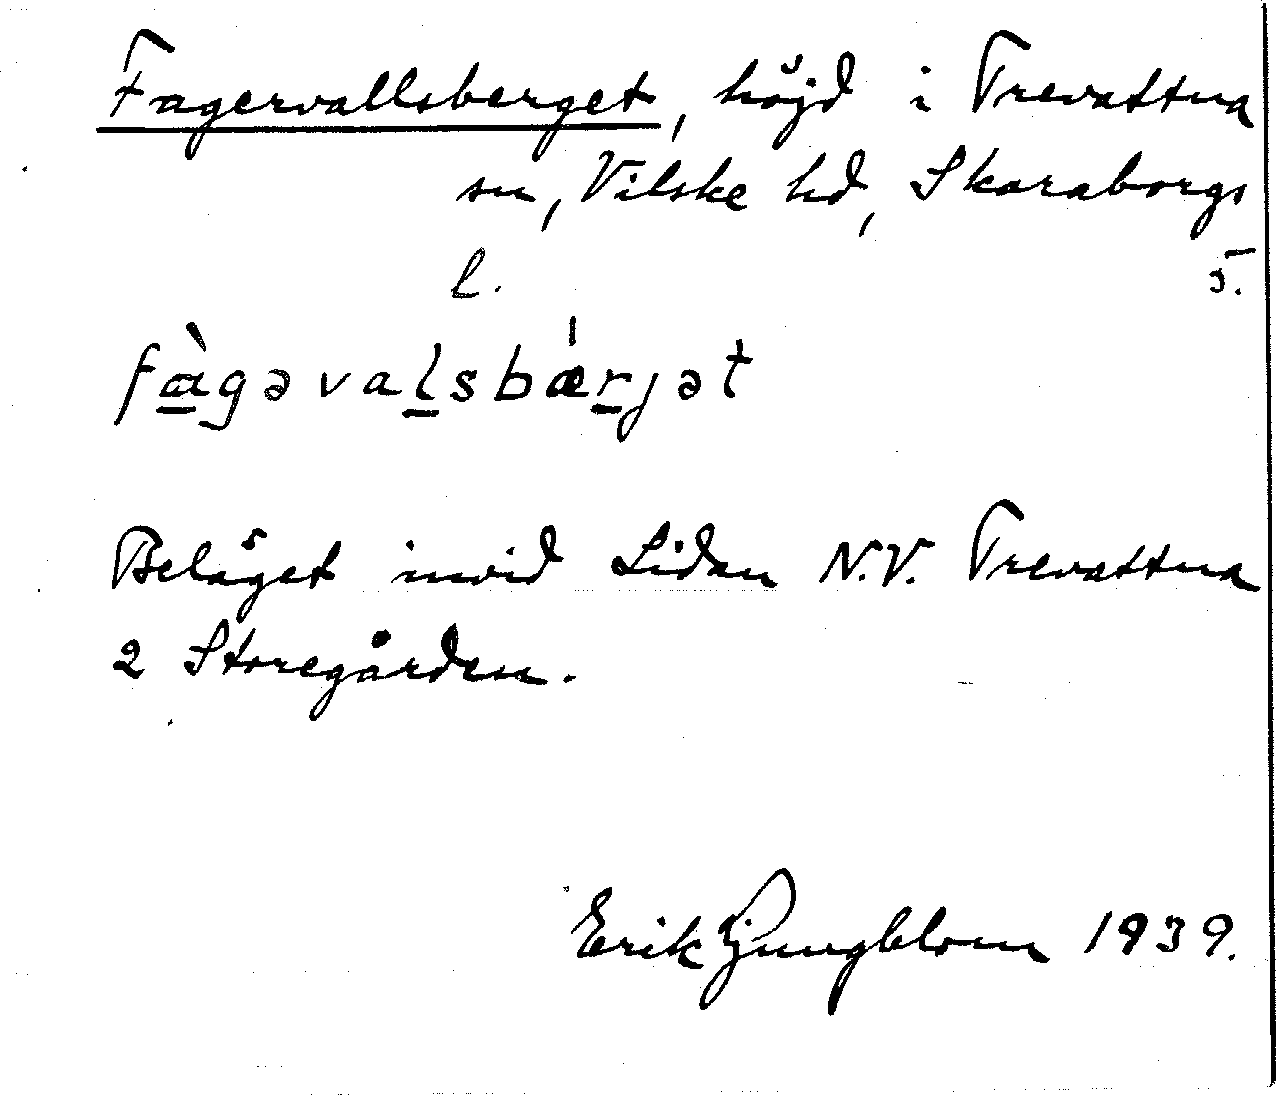 Fagervallsberget, höjd i Trevattna
sn, Vilske hd, Skaraborgs
l. 5.
fàgəvalsbǽrjət
Beläget invid Lidan N.V. Trevattna
2 Storegården.
Erik Ljungblom 1939.